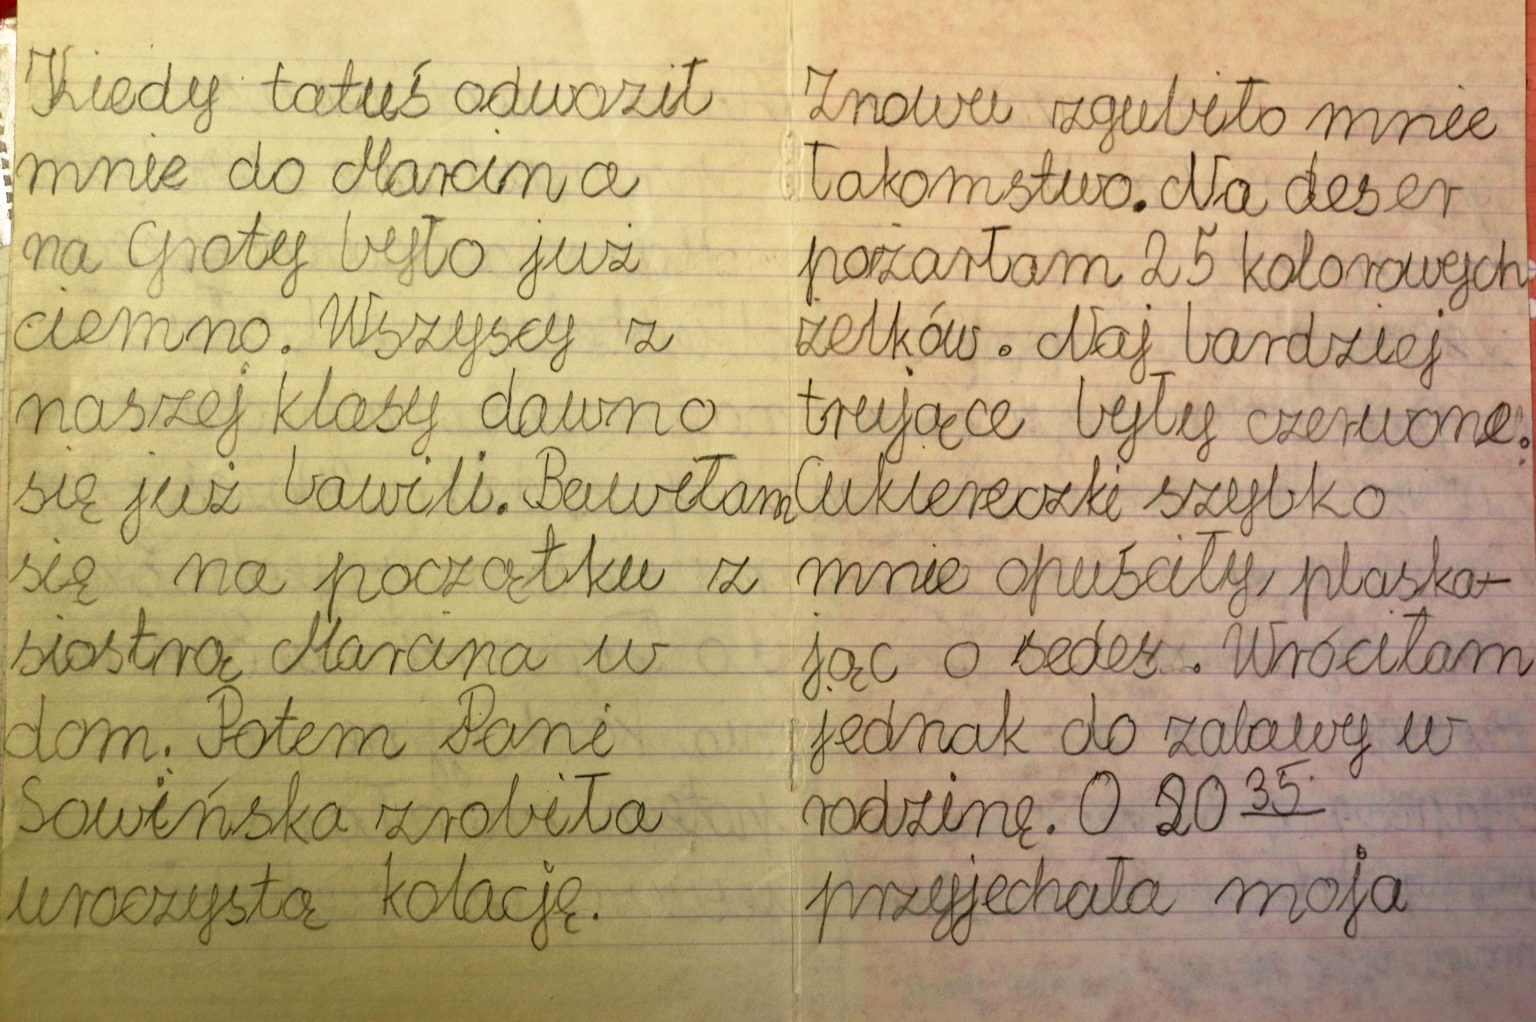 Kiedy tatuś odwoził
mnie do Marcina
na Groty było już
ciemno. Wszyscy z
naszej klasy dawno
się już bawili. Bawiłam
się na początku z
siostrą Marcina w
dom. Potem Pani
Sowińska zrobiła
uroczystą kolację.
Znowu zgubiło mnie
łakomstwo. Na deser
pożarłam 25 kolorowych
żelków. Naj bardziej
trujące były czerwone.
Cukiereczki szybko
mnie opuściły, plaska-
jąc o sedes. Wróciłam
jednak do zabawy w
rodzinę. O 20 35
przyjechała moja